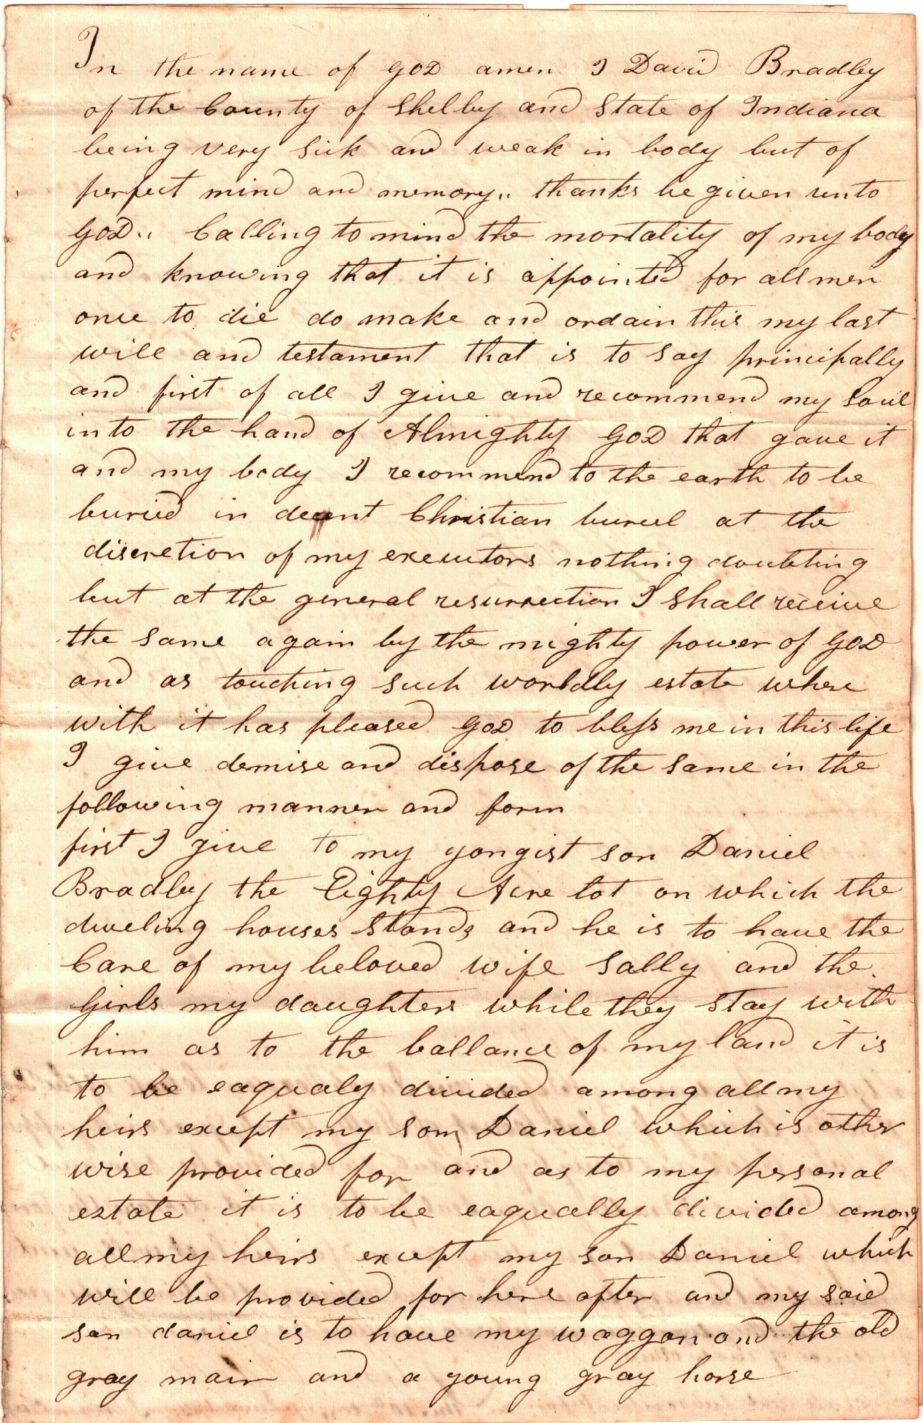 In the name of GOD amen I David Bradley
of the County of Shelby and State of Indiana
being very Sick and weak in body but of
perfect mind and memory,, thanks be given unto
GOD,, Calling to mind the mortality of my body
and knowing that it is appointed for all men
once to die do make and ordain this my last
will and testament that is to Say principally
and first of all I give and recommend my Soul
into the hand of Almighty GOD that gave it
and my body I recommend to the earth to be
buried in decent Christian buriel at the
discretion of my executors nothing doubting
but at the general resurrection I Shall receive
the Same again by the mighty power of GOD
and as touching Such worldly estate where
with it has pleased GOD to bless me in this life
I give demise and dispose of the Same in the
following manner and form
first I give to my yongist son Daniel
Bradley the Eighty Acre lot on which the
dweling houses Stands and he is to have the
Care of my beloved wife Sally and the
Girls my daughters while they Stay with
him as to the ballance of my land it is
to be eaqualy divided among all my
heirs except my son Daniel which is other
wise provided for and as to my personal
estate it is to be eaqually divided among
all my heirs except my son Daniel which
will be provided for here after and my said
son daniel is to have my waggon and the old
gray mair and a young gray horse